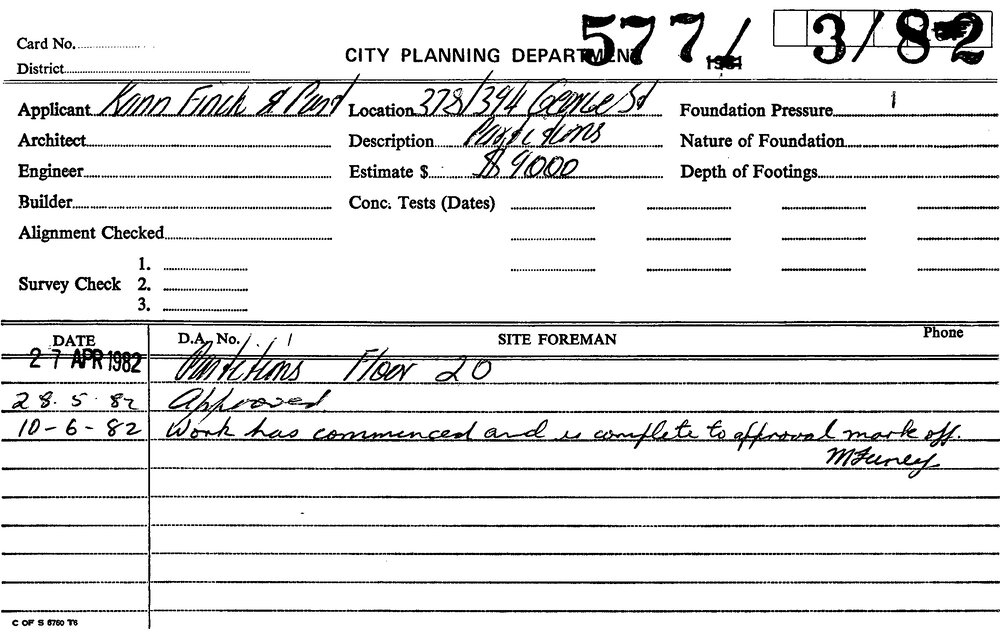 Card No.
CITY PLANNING DEPARTMENT 577/ 3/82
District
Applicant Kann Finch & Part Location 378/394 George St Foundation Pressure
Architect Description Partitions Nature of Foundation
Engineer Estimate $ $9000 Depth of Footings
Builder Conc. Tests (Dates)
Alignment Checked
1.
Survey Check 2.
3.
DATE D.A. No. SITE FOREMAN Phone
27 APR 1982 Partitions Floor 20
28.5.82 Approved.
10-6-82 Work has commenced and is complete to approval mark off.
C OF S 5750 T6